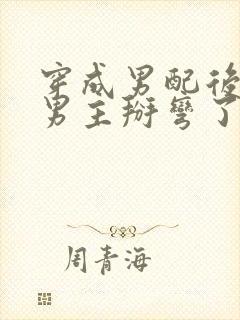 穿成男配後
男主掰彎了
周青海